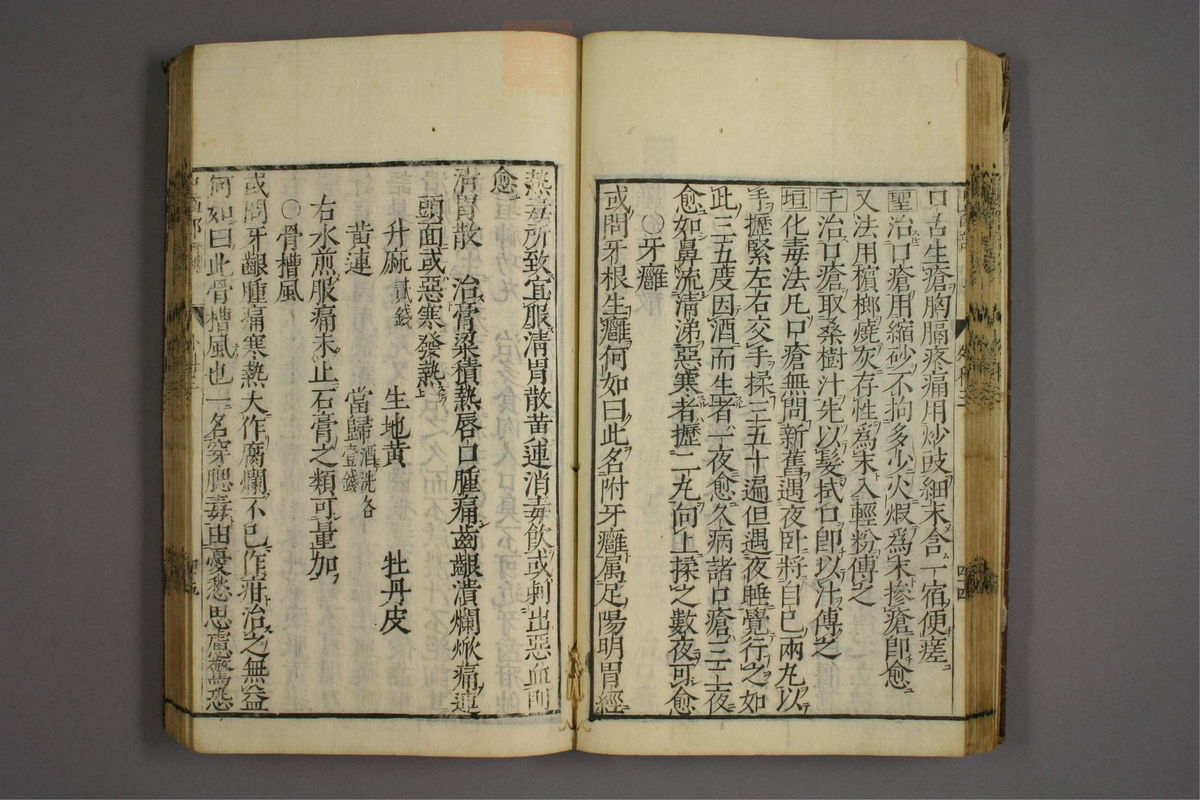 口舌生瘡胸膈疼痛用炒豉細末含一宿便瘥
聖治口瘡用縮砂不拘多少火煆為末摻瘡即愈
又法用檳榔燒灰存性為末入輕粉傅之
千治口瘡取桑樹汁先以髮拭口即以汁傅之
垣化毒法凡口瘡無問新舊遇夜卧將自己兩丸以
手攊緊左右交手揉三五十遍但遇夜睡覺行之如
此三五度因酒而生者一夜愈久病諸口瘡三二夜
愈如鼻流清涕惡寒者攊二丸向上揉之數夜可愈
〇牙癰
或問牙根生癰何如曰此名附牙癰属足陽明胃經
熱毒所致宜服清胃散黃連消毒飲或刺出惡血則
愈
清胃散 治膏粱積熱唇口腫痛齒齦潰爛焮痛連
頭面或惡寒發熱
升麻貳錢 生地黃 牡丹皮
黃連 當歸酒洗各壹錢
右水煎服痛未止石膏之類可量加
〇骨槽風
或問牙齦腫痛寒熱大作腐爛不已作疳治之無益
何如曰此骨槽風也一名穿腮毒由憂愁思慮驚恐